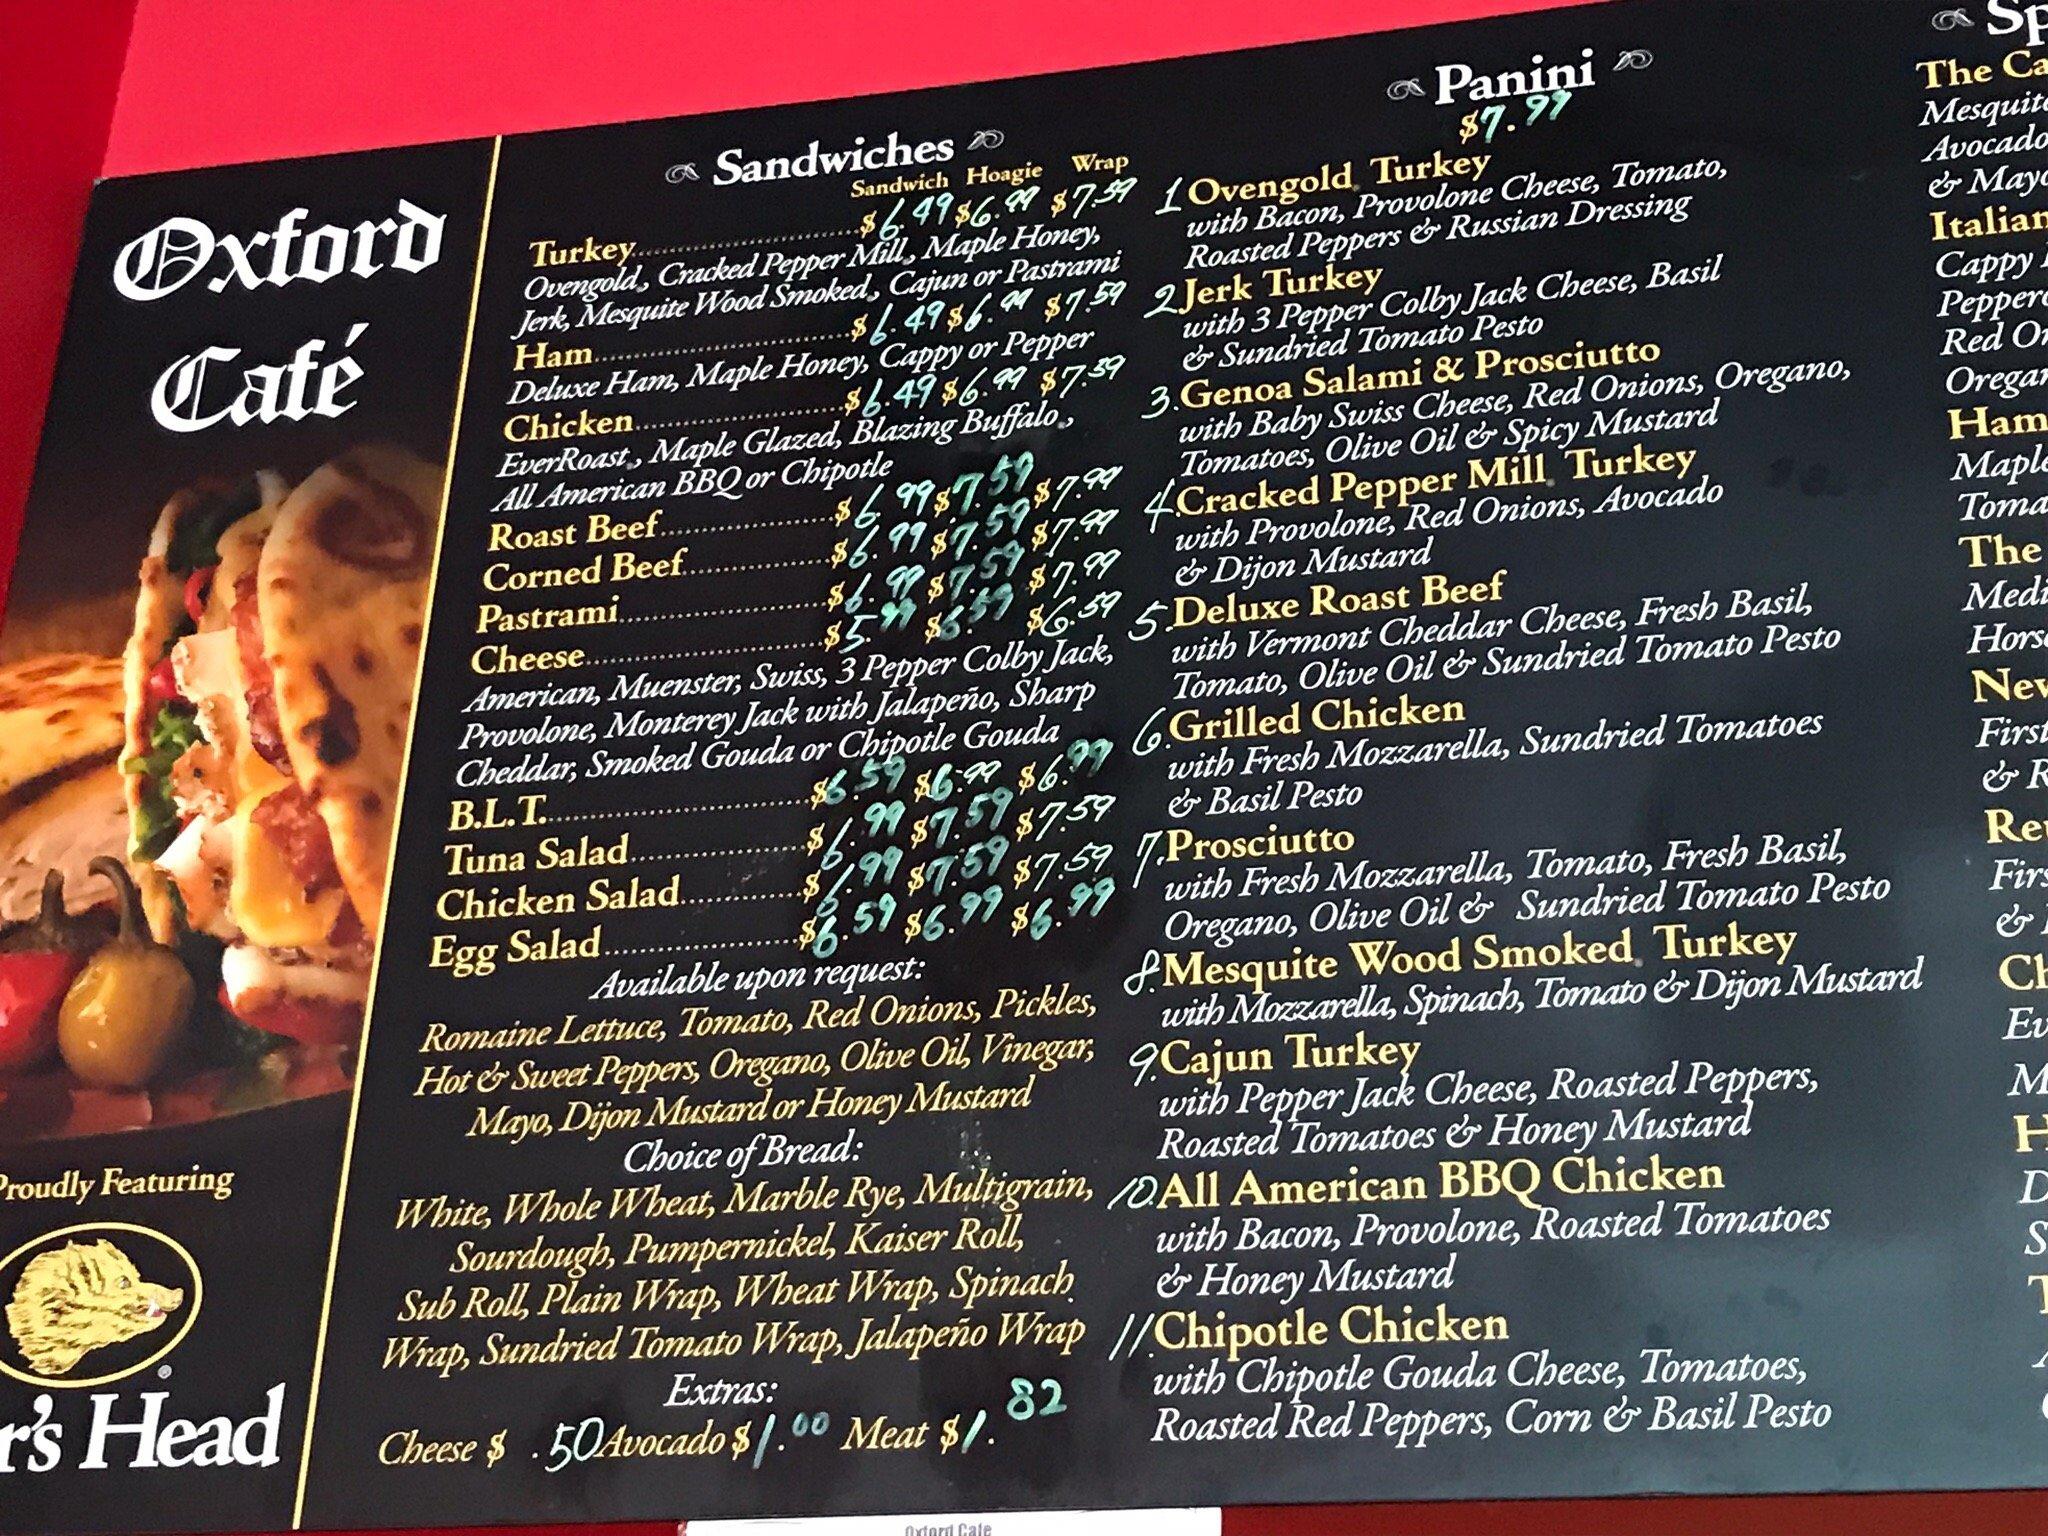 Oxford
Café
Proudly Featuring
r's Head
Sandwiches
Sandwich Hoagie Wrap
Turkey $6.49 $6.99 $7.59
Ovengold, Cracked Pepper Mill, Maple Honey,
Jerk, Mesquite Wood Smoked, Cajun or Pastrami
Ham $6.49 $6.99 $7.59
Deluxe Ham, Maple Honey, Cappy or Pepper
Chicken $6.49 $6.99 $7.59
EverRoast, Maple Glazed, Blazing Buffalo,
All American BBQ or Chipotle
Roast Beef $6.99 $7.59 $7.99
Corned Beef $6.99 $7.59 $7.99
Pastrami $6.99 $7.59 $7.99
Cheese $5.99 $6.59 $6.59
American, Muenster, Swiss, 3 Pepper Colby Jack,
Provolone, Monterey Jack with Jalapeño, Sharp
Cheddar, Smoked Gouda or Chipotle Gouda
B.L.T. $6.59 $6.99 $6.99
Tuna Salad $6.99 $7.59 $7.59
Chicken Salad $6.99 $7.59 $7.59
Egg Salad $6.59 $6.99 $6.99
Available upon request:
Romaine Lettuce, Tomato, Red Onions, Pickles,
Hot & Sweet Peppers, Oregano, Olive Oil, Vinegar,
Mayo, Dijon Mustard or Honey Mustard
Choice of Bread:
White, Whole Wheat, Marble Rye, Multigrain,
Sourdough, Pumpernickel, Kaiser Roll,
Sub Roll, Plain Wrap, Wheat Wrap, Spinach
Wrap, Sundried Tomato Wrap, Jalapeño Wrap
Extras:
Cheese $ .50 Avocado $1.00 Meat $1.82
Panini
$7.99
1 Ovengold Turkey
with Bacon, Provolone Cheese, Tomato,
Roasted Peppers & Russian Dressing
2 Jerk Turkey
with 3 Pepper Colby Jack Cheese, Basil
& Sundried Tomato Pesto
3. Genoa Salami & Prosciutto
with Baby Swiss Cheese, Red Onions, Oregano,
Tomatoes, Olive Oil & Spicy Mustard
4. Cracked Pepper Mill Turkey
with Provolone, Red Onions, Avocado
& Dijon Mustard
5. Deluxe Roast Beef
with Vermont Cheddar Cheese, Fresh Basil,
Tomato, Olive Oil & Sundried Tomato Pesto
6. Grilled Chicken
with Fresh Mozzarella, Sundried Tomatoes
& Basil Pesto
7. Prosciutto
with Fresh Mozzarella, Tomato, Fresh Basil,
Oregano, Olive Oil & Sundried Tomato Pesto
8. Mesquite Wood Smoked Turkey
with Mozzarella, Spinach, Tomato & Dijon Mustard
9. Cajun Turkey
with Pepper Jack Cheese, Roasted Peppers,
Roasted Tomatoes & Honey Mustard
10. All American BBQ Chicken
with Bacon, Provolone, Roasted Tomatoes
& Honey Mustard
11. Chipotle Chicken
with Chipotle Gouda Cheese, Tomatoes,
Roasted Red Peppers, Corn & Basil Pesto
Sp
The Ca
Mesquite
Avocado
& Mayo
Italian
Cappy
Peppero
Red On
Oregan
Ham
Maple
Toma
The
Medi
Horse
New
First
& R
Reu
Firs
&
Ch
Ev
M
H
D
S
T
Oxford Cafe